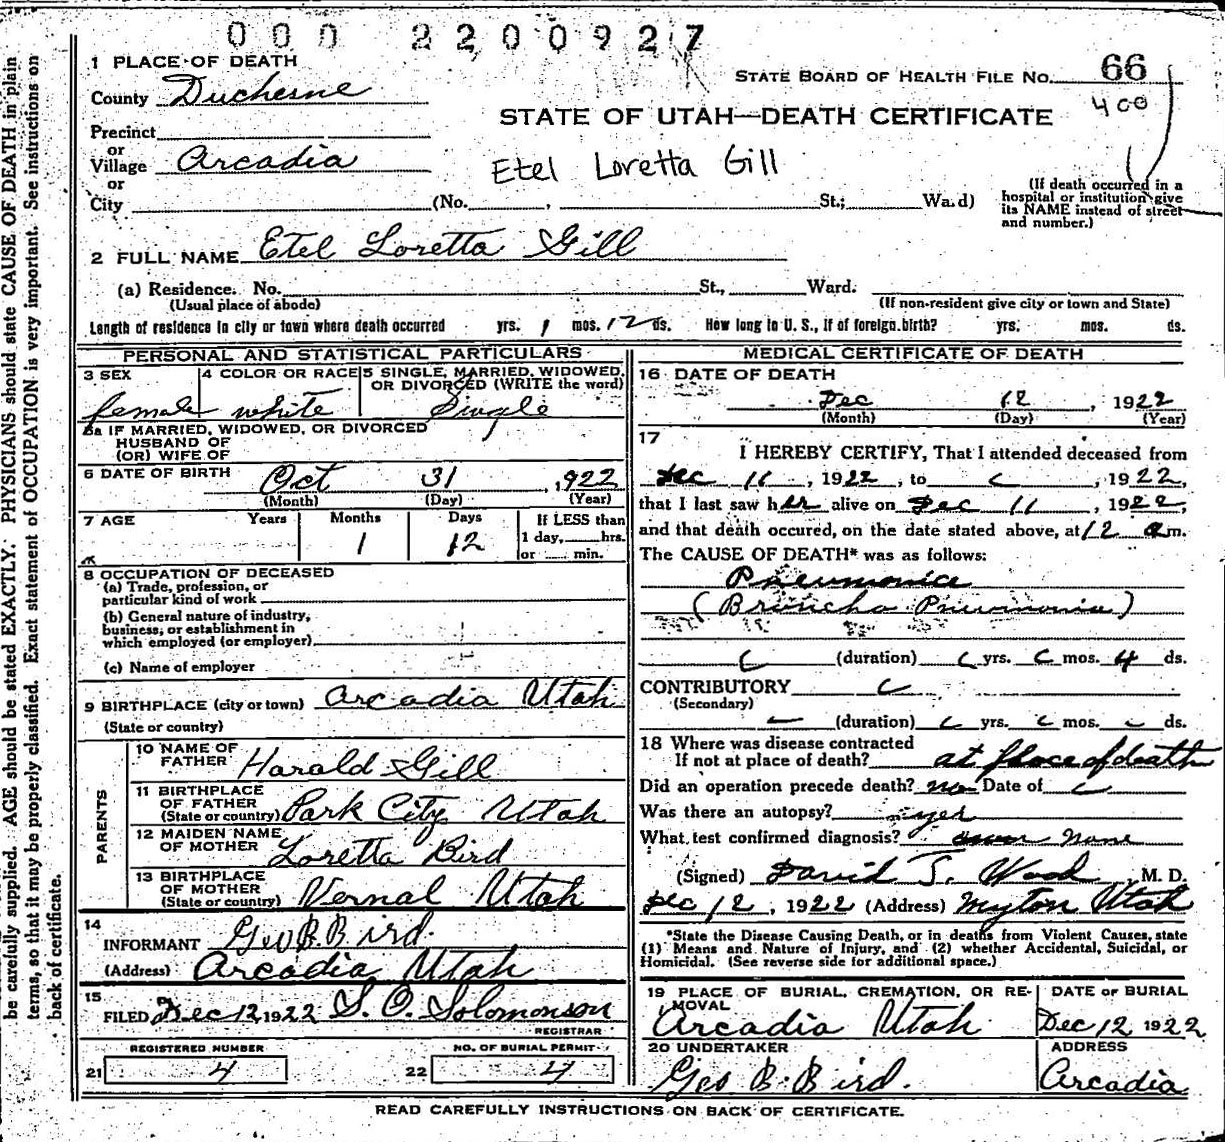 000 2200927
1 PLACE OF DEATH
County Duchesne
STATE BOARD OF HEALTH FILE No. 66
400
STATE OF UTAH—DEATH CERTIFICATE
Precinct
or
Village Arcadia
or
Etel Loretta Gill
City (No. , St.; Ward)
(If death occurred in a
hospital or institution give
its NAME instead of street
and number.)
2 FULL NAME Etel Loretta Gill
(a) Residence. No. St., Ward.
(Usual place of abode) (If non-resident give city or town and State)
Length of residence in city or town where death occurred yrs. 1 mos. 12 ds. How long in U. S., if of foreign birth? yrs. mos. ds.
PERSONAL AND STATISTICAL PARTICULARS
3 SEX 4 COLOR OR RACE 5 SINGLE, MARRIED, WIDOWED,
OR DIVORCED (WRITE the word)
female white Single
5a IF MARRIED, WIDOWED, OR DIVORCED
HUSBAND OF
(OR) WIFE OF
6 DATE OF BIRTH Oct 31, 1922
(Month) (Day) (Year)
7 AGE Years Months Days If LESS than
1 12 1 day, hrs.
or min.
8 OCCUPATION OF DECEASED
(a) Trade, profession, or
particular kind of work
(b) General nature of industry,
business, or establishment in
which employed (or employer)
(c) Name of employer
9 BIRTHPLACE (city or town) Arcadia Utah
(State or country)
PARENTS
10 NAME OF
FATHER Harald Gill
11 BIRTHPLACE
OF FATHER
(State or country) Park City Utah
12 MAIDEN NAME
OF MOTHER Loretta Bird
13 BIRTHPLACE
OF MOTHER
(State or country) Vernal Utah
14
INFORMANT Geo B. Bird.
(Address) Arcadia Utah
15
FILED Dec 12 1922 S. O. Solomonson
REGISTRAR
REGISTERED NUMBER NO. OF BURIAL PERMIT
21 4 22 4
MEDICAL CERTIFICATE OF DEATH
16 DATE OF DEATH
Dec 12, 1922
(Month) (Day) (Year)
17
I HEREBY CERTIFY, That I attended deceased from
Dec 11, 1922, to , 1922,
that I last saw her alive on Dec 11, 1922,
and that death occured, on the date stated above, at 12 a m.
The CAUSE OF DEATH* was as follows:
Pneumonia
(Broncho Pneumonia)
(duration) yrs. mos. 4 ds.
CONTRIBUTORY
(Secondary)
(duration) yrs. mos. ds.
18 Where was disease contracted
If not at place of death? at place of death
Did an operation precede death? no Date of
Was there an autopsy? yes
What test confirmed diagnosis? none
(Signed) David T. Wood, M. D.
Dec 12, 1922 (Address) Myton Utah
*State the Disease Causing Death, or in deaths from Violent Causes, state
(1) Means and Nature of Injury, and (2) whether Accidental, Suicidal, or
Homicidal. (See reverse side for additional space.)
19 PLACE OF BURIAL, CREMATION, OR RE-
MOVAL
Arcadia Utah
DATE OF BURIAL
Dec 12 1922
20 UNDERTAKER
Geo B. Bird.
ADDRESS
Arcadia
READ CAREFULLY INSTRUCTIONS ON BACK OF CERTIFICATE.
be carefully supplied. AGE should be stated EXACTLY. PHYSICIANS should state CAUSE OF DEATH in plain
terms, so that it may be properly classified. Exact statement of OCCUPATION is very important. See instructions on
back of certificate.